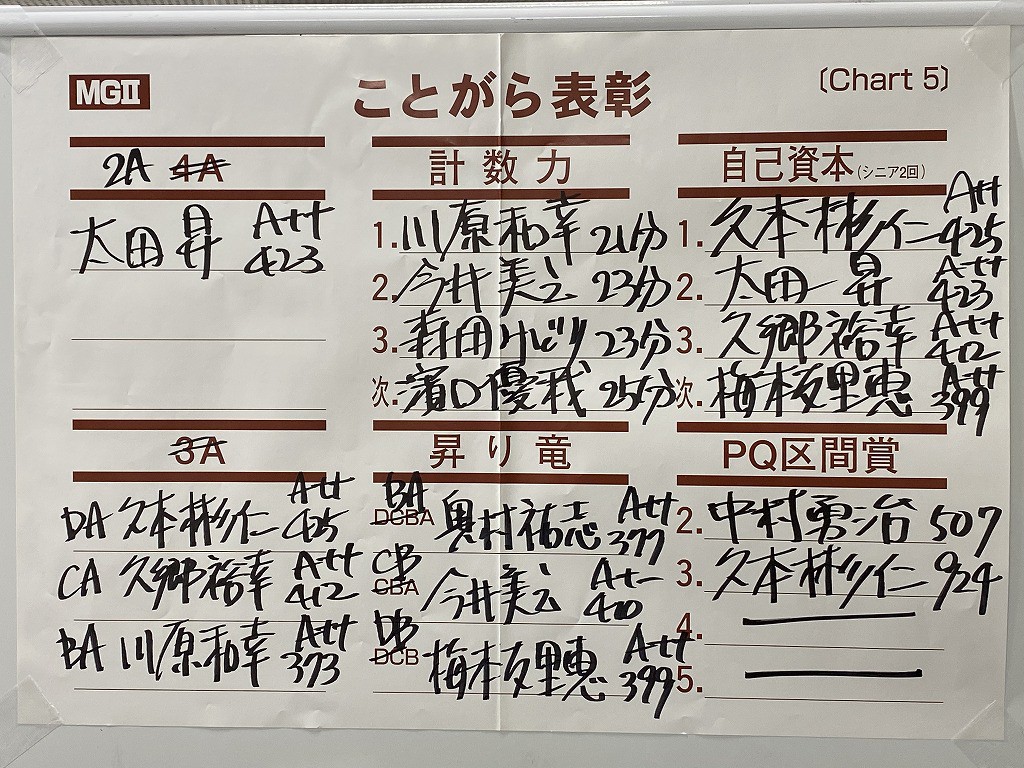 MGII
ことがら表彰
〔Chart 5〕
2A 4A
太田 昇 A+++ 423
計数力
1. 川原和幸 21分
2. 今井美之 23分
3. 森田みどり 23分
次. 濱口優哉 25分
自己資本(シニア2回)
1. 久本彬仁 A++ 425
2. 太田 昇 A+++ 423
3. 久郷裕幸 A+++ 412
次. 梅本友里恵 A+++ 399
3A
DA 久本彬仁 A++ 425
CA 久郷裕幸 A+++ 412
BA 川原和幸 A+++ 373
昇り竜
BA DCBA 奥村祐志 A+++ 377
CB CBA 今井美之 A++ 410
DB DCB 梅本友里恵 A+++ 399
PQ区間賞
2. 中村勇治 507
3. 久本彬仁 924
4.
5.